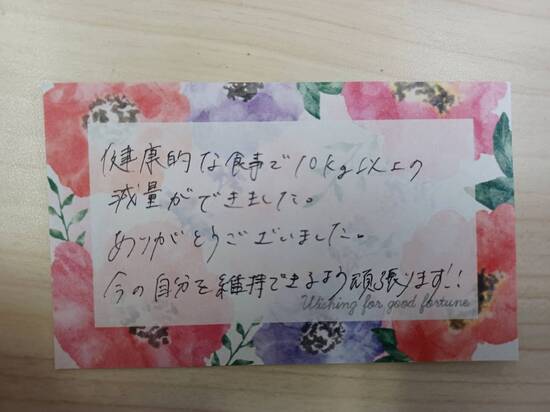 健康的な食事で10kg以上の
減量ができました。
ありがとうございました。
今の自分を維持できるよう頑張ります!!
Wishing for good fortune